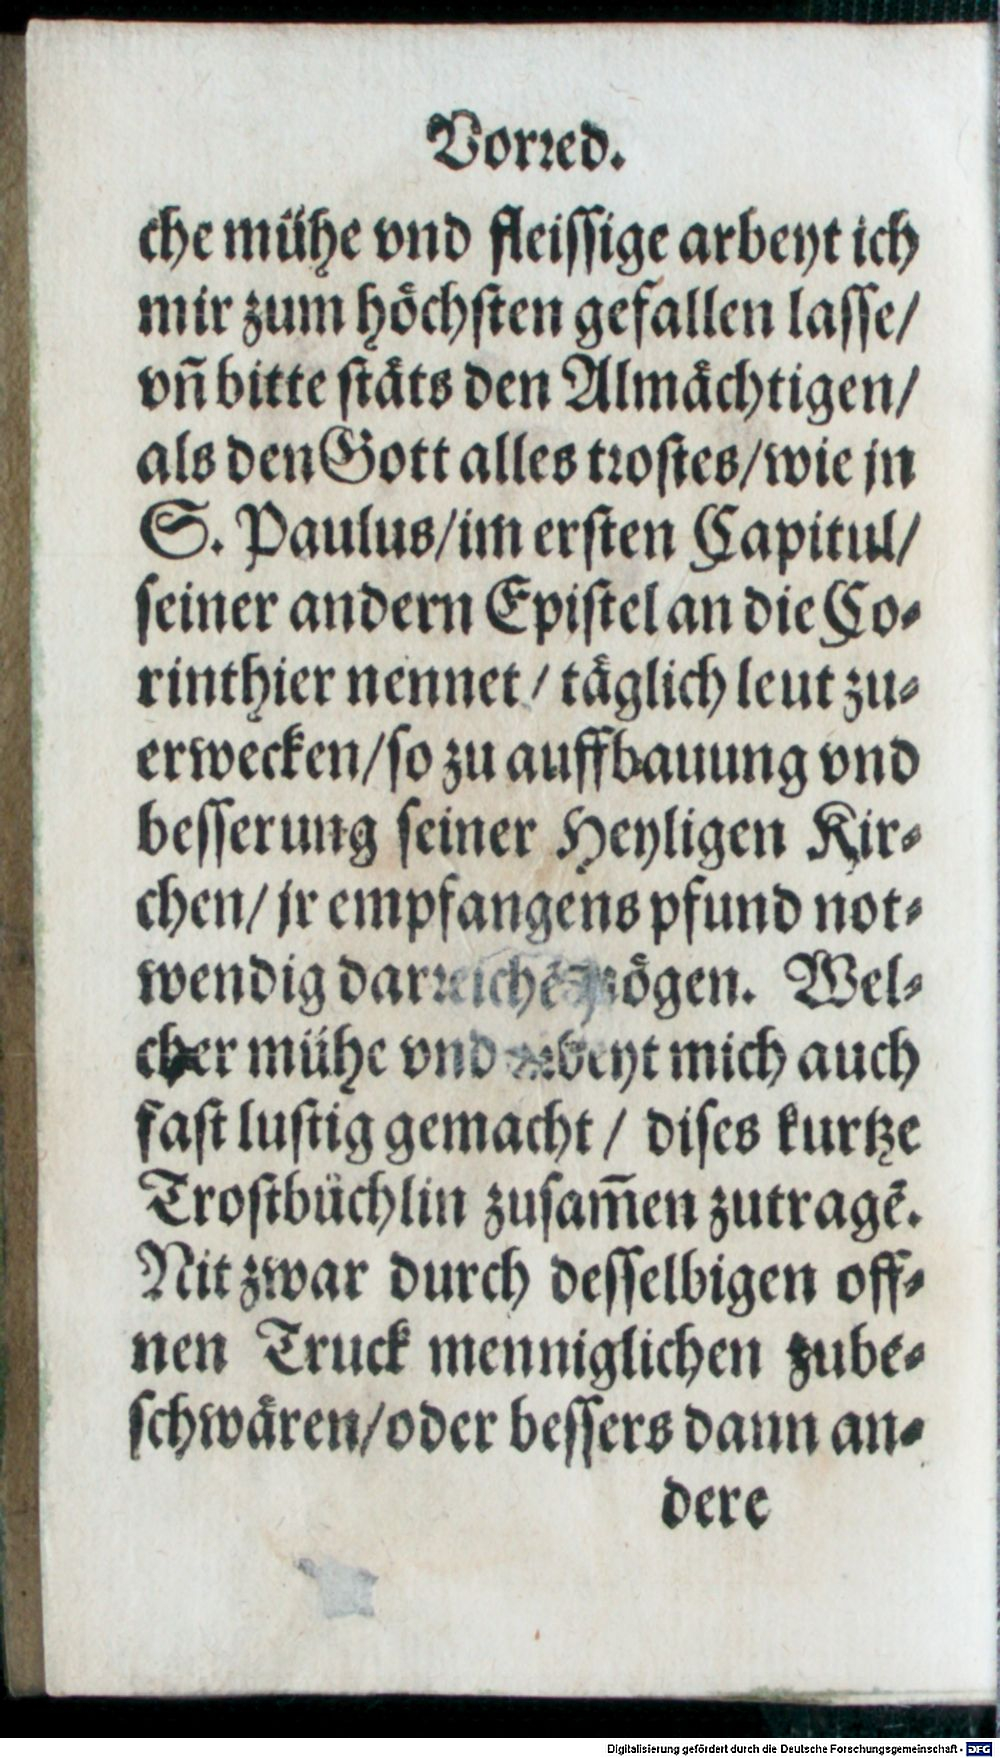 Vorred.
che mühe vnd fleissige arbeyt ich
mir zum höchsten gefallen lasse/
vn̄ bitte stäts den Almächtigen/
als den Gott alles trostes/wie jn
S. Paulus/im ersten Capitul/
seiner andern Epistel an die Co-
rinthier nennet/ täglich leut zu-
erwecken/so zu auffbauung vnd
besserung seiner Heyligen Kir-
chen/ jr empfangens pfund not-
wendig darreichē mögen. Wel-
cher mühe vnd arbeyt mich auch
fast lustig gemacht/ dises kurtze
Trostbüchlin zusam̄en zutragē.
Nit zwar durch desselbigen off-
nen Truck menniglichen zube-
schwären/oder bessers dann an-
dere
Digitalisierung gefördert durch die Deutsche Forschungsgemeinschaft - DFG